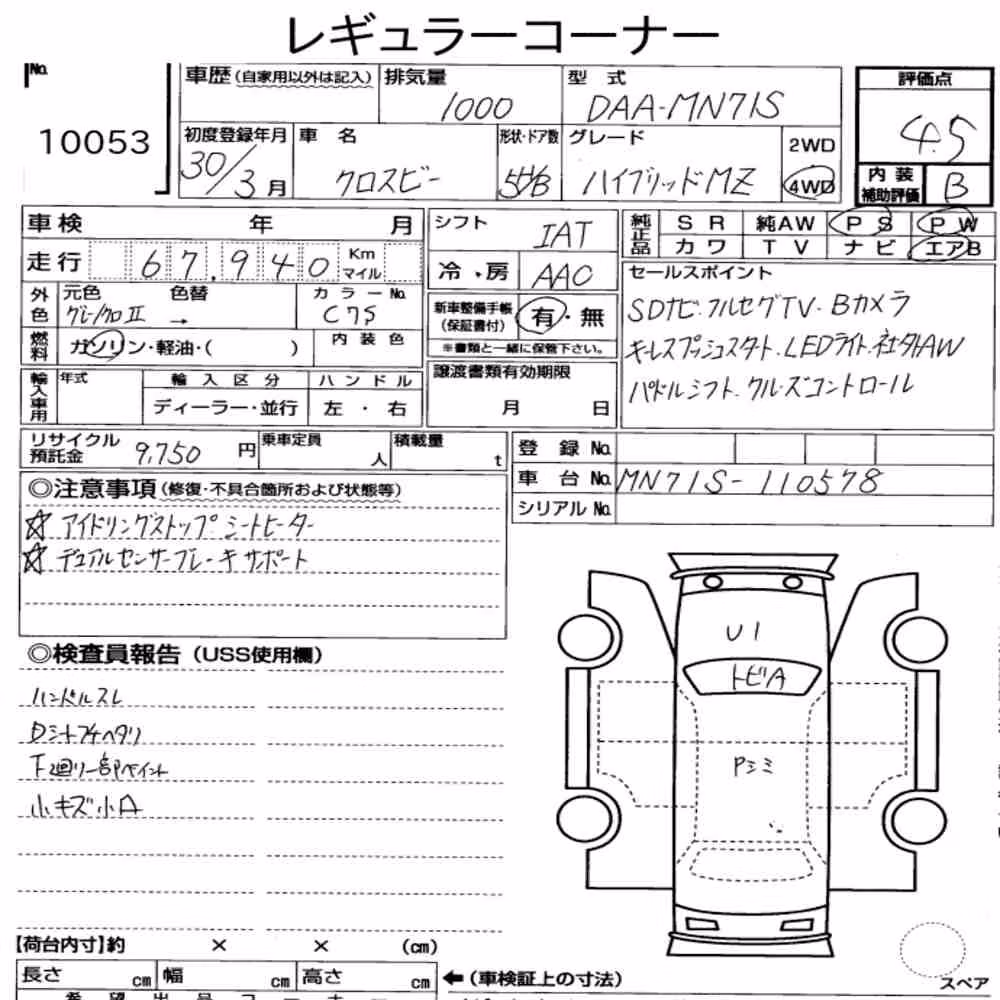 レギュラーコーナー
No.
10053
車歴(自家用以外は記入)
排気量
1000
型 式
DAA-MN71S
評価点
4.5
初度登録年月
30/3月
車 名
クロスビー
形状・ドア数
5HB
グレード
ハイブリッドMZ
2WD
4WD
内装補助評価
B
車検 年 月
走行 67,940 Km マイル
シフト IAT
冷・房 AAC
純正品 SR 純AW PS PW
カワ TV ナビ エアB
外色 元色 グレー/クロII 色替 → カラーNo. C7S
燃料 ガソリン・軽油・( )
内装色
新車整備手帳(保証書付) 有・無
※書類と一緒に保管下さい。
セールスポイント
SDナビ・フルセグTV・Bカメラ
キーレスプッシュスタート・LEDライト・社外AW
パドルシフト・クルーズコントロール
輸入車用 年式 輸入区分 ハンドル
ディーラー・並行 左・右
譲渡書類有効期限
月 日
リサイクル預託金 9,750円
乗車定員 人
積載量 t
登録No.
車台No. MN71S-110578
シリアルNo.
◎注意事項(修復・不具合箇所および状態等)
☆アイドリングストップ シートヒーター
☆デュアルセンサーブレーキサポート
◎検査員報告(USS使用欄)
ハンドルスレ
Dシートフチヘタリ
下廻り一部ペイント
小キズ小凹
U1
トビA
Pシミ
【荷台内寸】約 × × (cm)
長さ cm 幅 cm 高さ cm
←(車検証上の寸法)
スペア